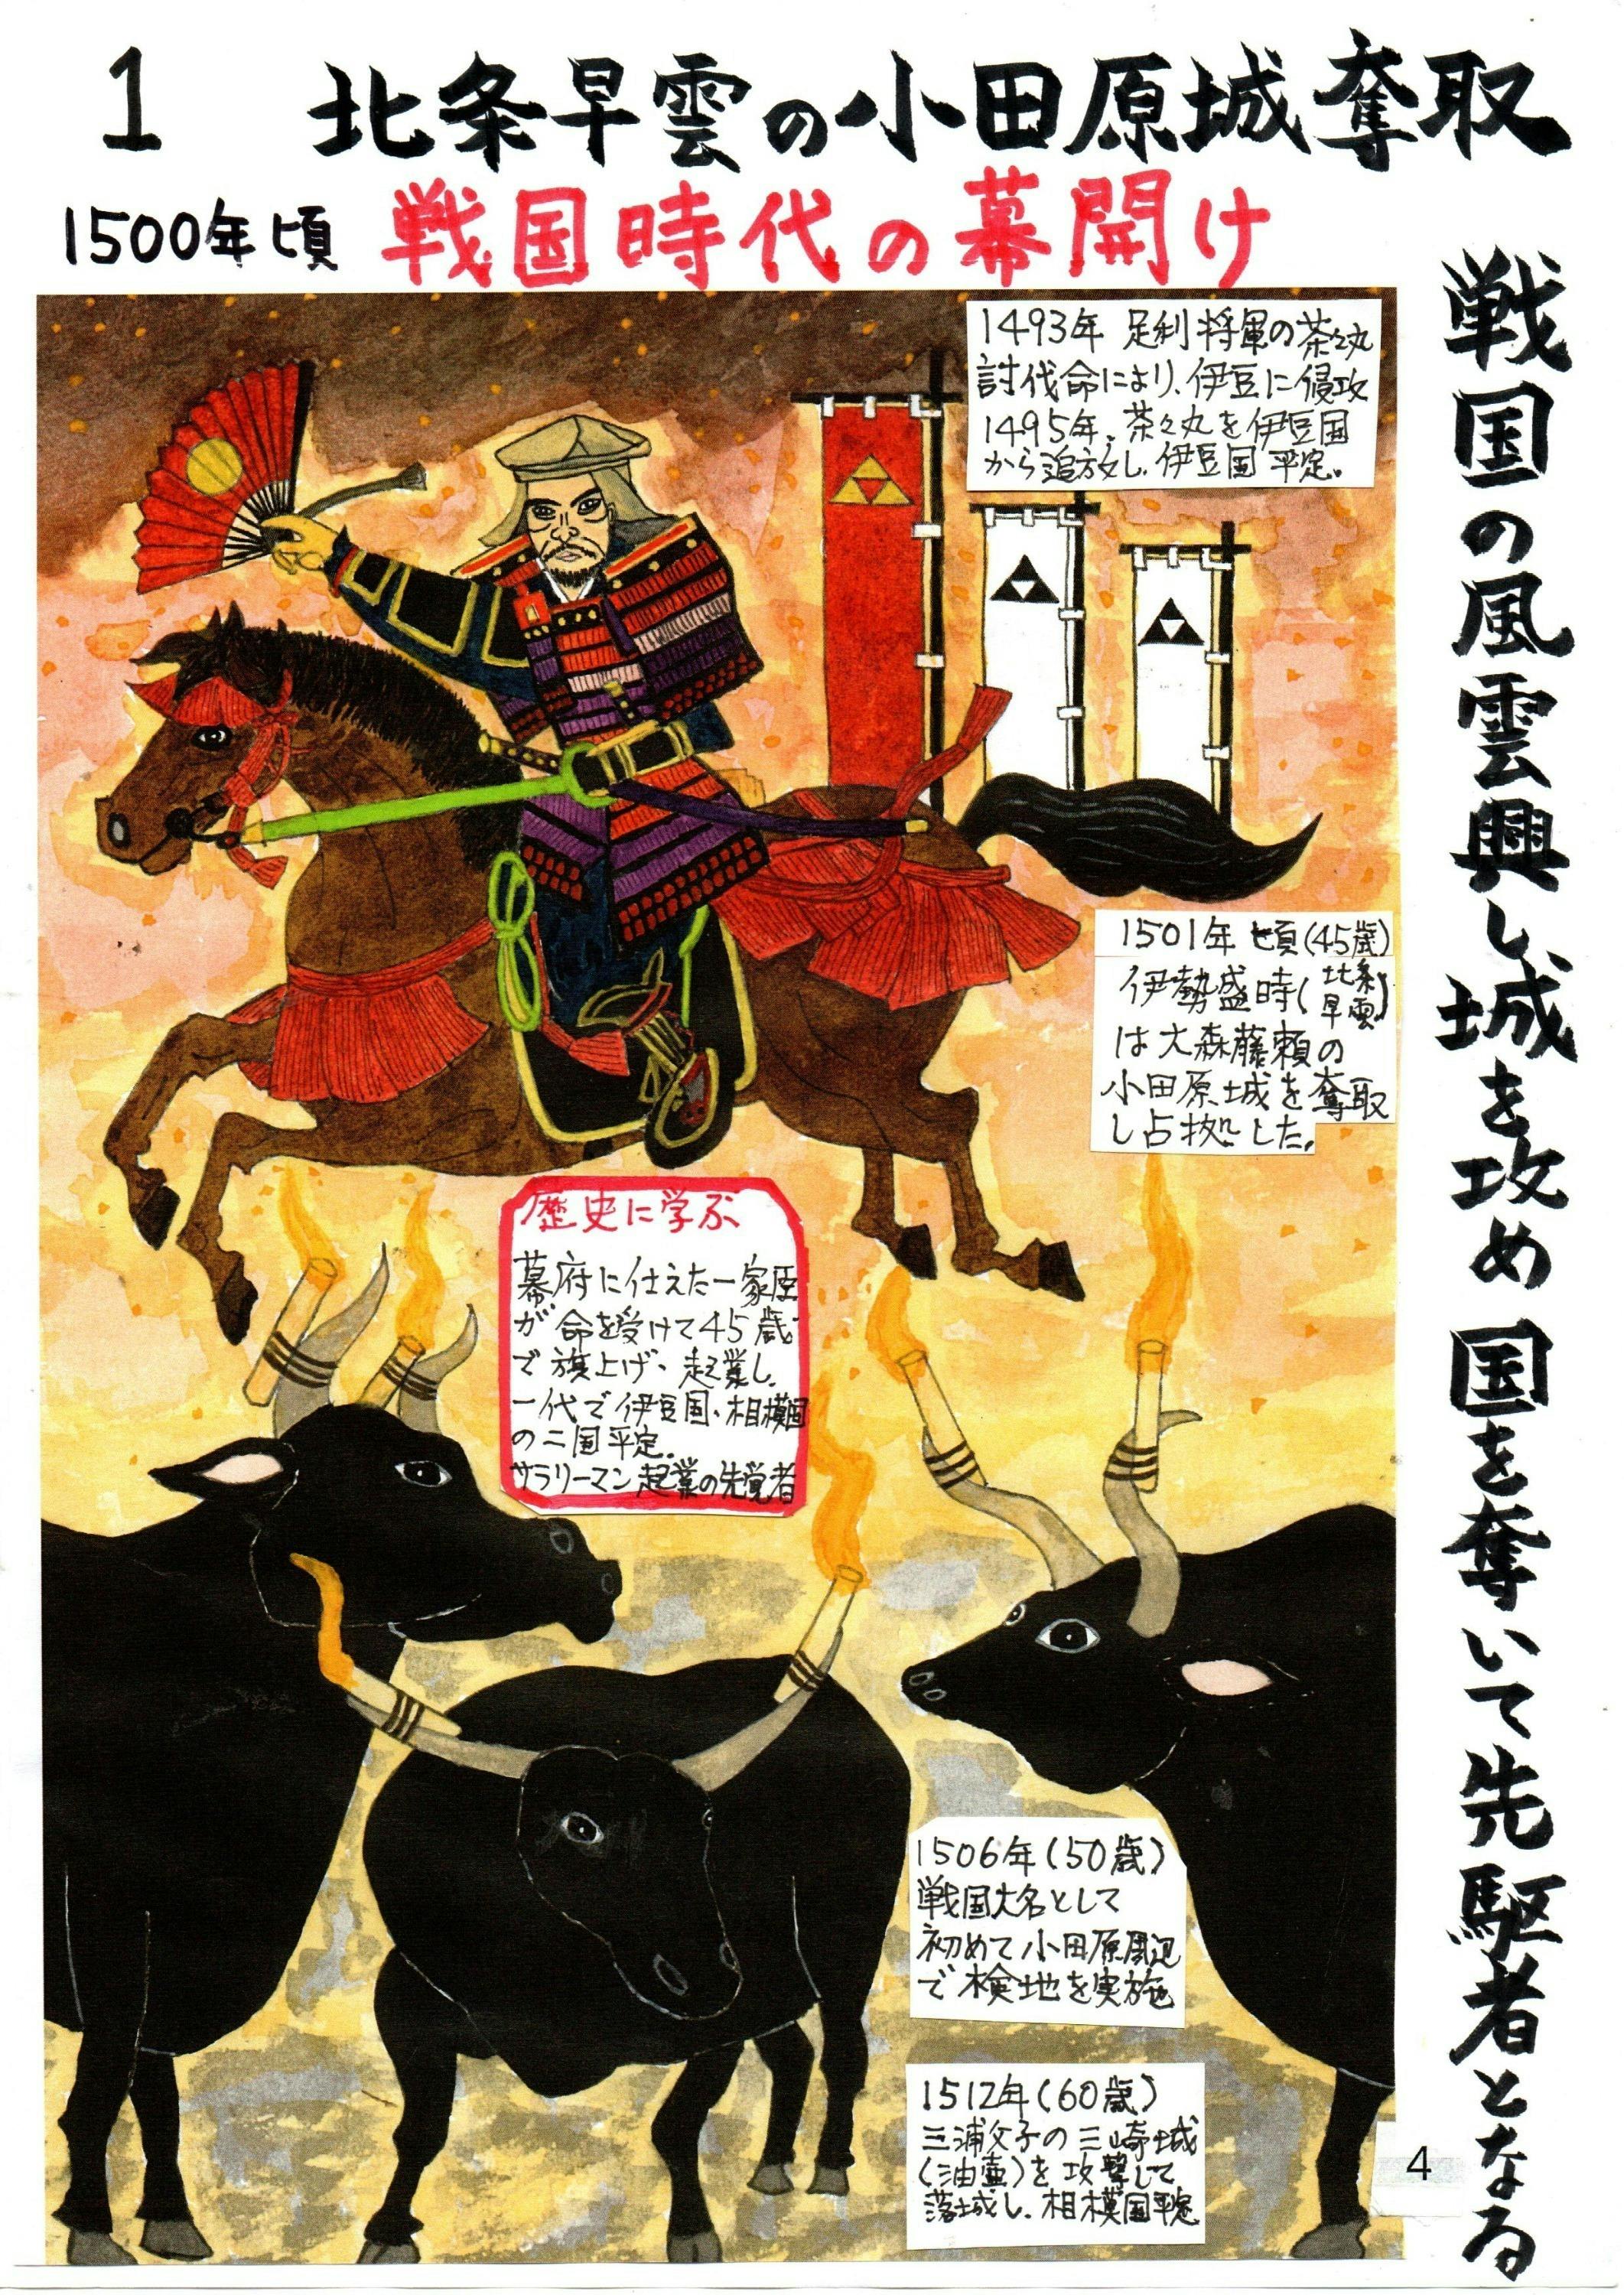 1 北条早雲の小田原城奪取
1500年頃 戦国時代の幕開け
戦国の風雲興し城を攻め 国を奪いて先駆者となる
1493年 足利将軍の茶々丸
討代命により、伊豆に侵攻
1495年、茶々丸を伊豆国
から追放し、伊豆国平定。
1501年頃(45歳)
伊勢盛時(北条早雲)
は大森藤頼の
小田原城を奪取
し占拠した。
歴史に学ぶ
幕府に仕えた一家臣
が命を受けて45歳
で旗上げ、起業し、
一代で伊豆国、相模国
の二国平定。
サラリーマン起業の先覚者
1506年(50歳)
戦国大名として
初めて小田原周辺
で検地を実施
1512年(60歳)
三浦父子の三崎城
(油壷)を攻撃して
落城し、相模国平定
4